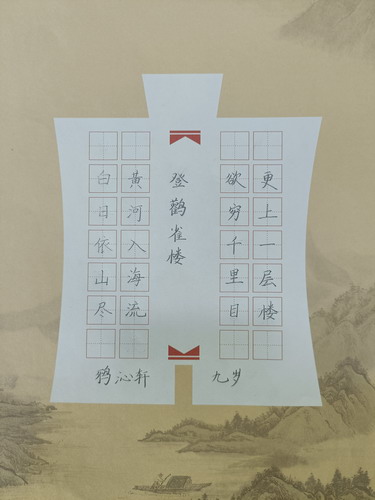 登鹳雀楼
白日依山尽
黄河入海流
欲穷千里目
更上一层楼
沁轩 九岁